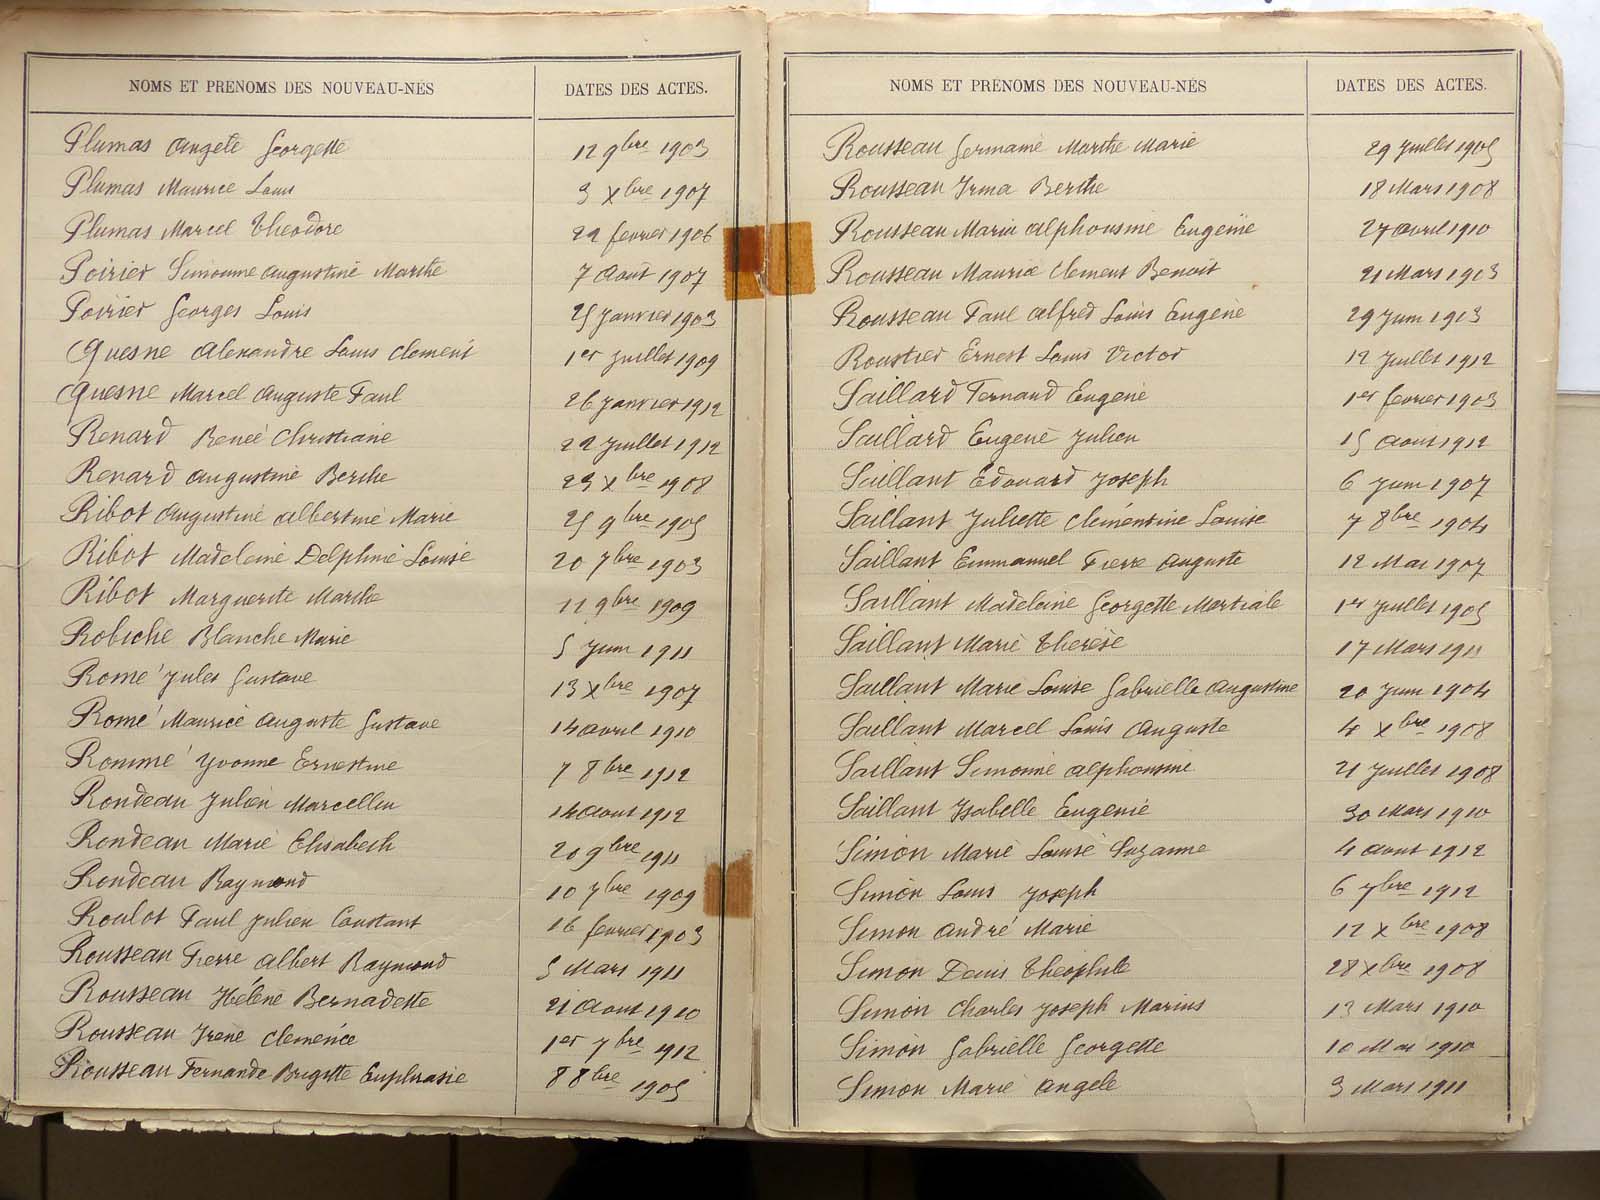 NOMS ET PRÉNOMS DES NOUVEAU-NÉS DATES DES ACTES.
Plumas Angele Georgette 12 9bre 1903
Plumas Maurice Louis 3 Xbre 1907
Plumas Marcel Théodore 22 février 1906
Poirier Simonne Augustine Marthe 7 Août 1907
Poirier Georges Louis 25 Janvier 1903
Quesne Alexandre Louis Clément 1er Juillet 1909
Quesne Marcel Auguste Paul 26 Janvier 1912
Renard Reneé Christiane 22 Juillet 1912
Renard Augustine Berthe 23 Xbre 1908
Ribot Augustine Albertine Marie 25 9bre 1905
Ribot Madeleine Delphine Louise 20 7bre 1903
Ribot Marguerite Marthe 12 9bre 1909
Robiche Blanche Marie 5 Juin 1911
Romé Jules Gustave 13 Xbre 1907
Romé Maurice Auguste Gustave 14 avril 1910
Rommé Yvonne Ernestine 7 8bre 1912
Rondeau Julien Marcellin 14 Aout 1912
Rondeau Marie Elisabeth 20 9bre 1911
Rondeau Raymond 10 7bre 1909
Roulot Paul Julien Constant 16 février 1903
Rousseau Pierre Albert Raymond 5 Mars 1911
Rousseau Hélène Bernadette 21 Aout 1910
Rousseau Irene Clemence 1er 7bre 1912
Rousseau Fernande Brigitte Euphrasie 8 8bre 1905
NOMS ET PRÉNOMS DES NOUVEAU-NÉS DATES DES ACTES.
Rousseau Germaine Marthe Marie 29 Juillet 1905
Rousseau Irma Berthe 18 Mars 1908
Rousseau Maria Alphonsine Eugénie 27 avril 1910
Rousseau Maurice Clement Benoit 21 Mars 1903
Rousseau Paul Alfred Louis Eugène 29 Juin 1913
Roustier Ernest Louis Victor 12 Juillet 1912
Saillard Fernand Eugène 1er février 1903
Saillard Eugène Julien 15 Aout 1912
Saillant Edouard Joseph 6 Juin 1907
Saillant Juliette Clémentine Louise 7 8bre 1904
Saillant Emmanuel Pierre Auguste 12 Mai 1907
Saillant Madeleine Georgette Martiale 1er Juillet 1905
Saillant Marie Thérèse 17 Mars 1911
Saillant Marie Louise Gabrielle Augustine 20 Juin 1904
Saillant Marcel Louis Auguste 4 Xbre 1908
Saillant Simonne Alphonsine 21 Juillet 1908
Saillant Isabelle Eugénie 30 Mars 1910
Simon Marie Louise Suzanne 4 Aout 1912
Simon Louis Joseph 6 7bre 1912
Simon André Marie 12 Xbre 1908
Simon Denis Théophile 28 Xbre 1908
Simon Charles Joseph Marius 13 Mars 1910
Simon Gabrielle Georgette 10 Mai 1910
Simon Marie Angele 3 Mars 1911